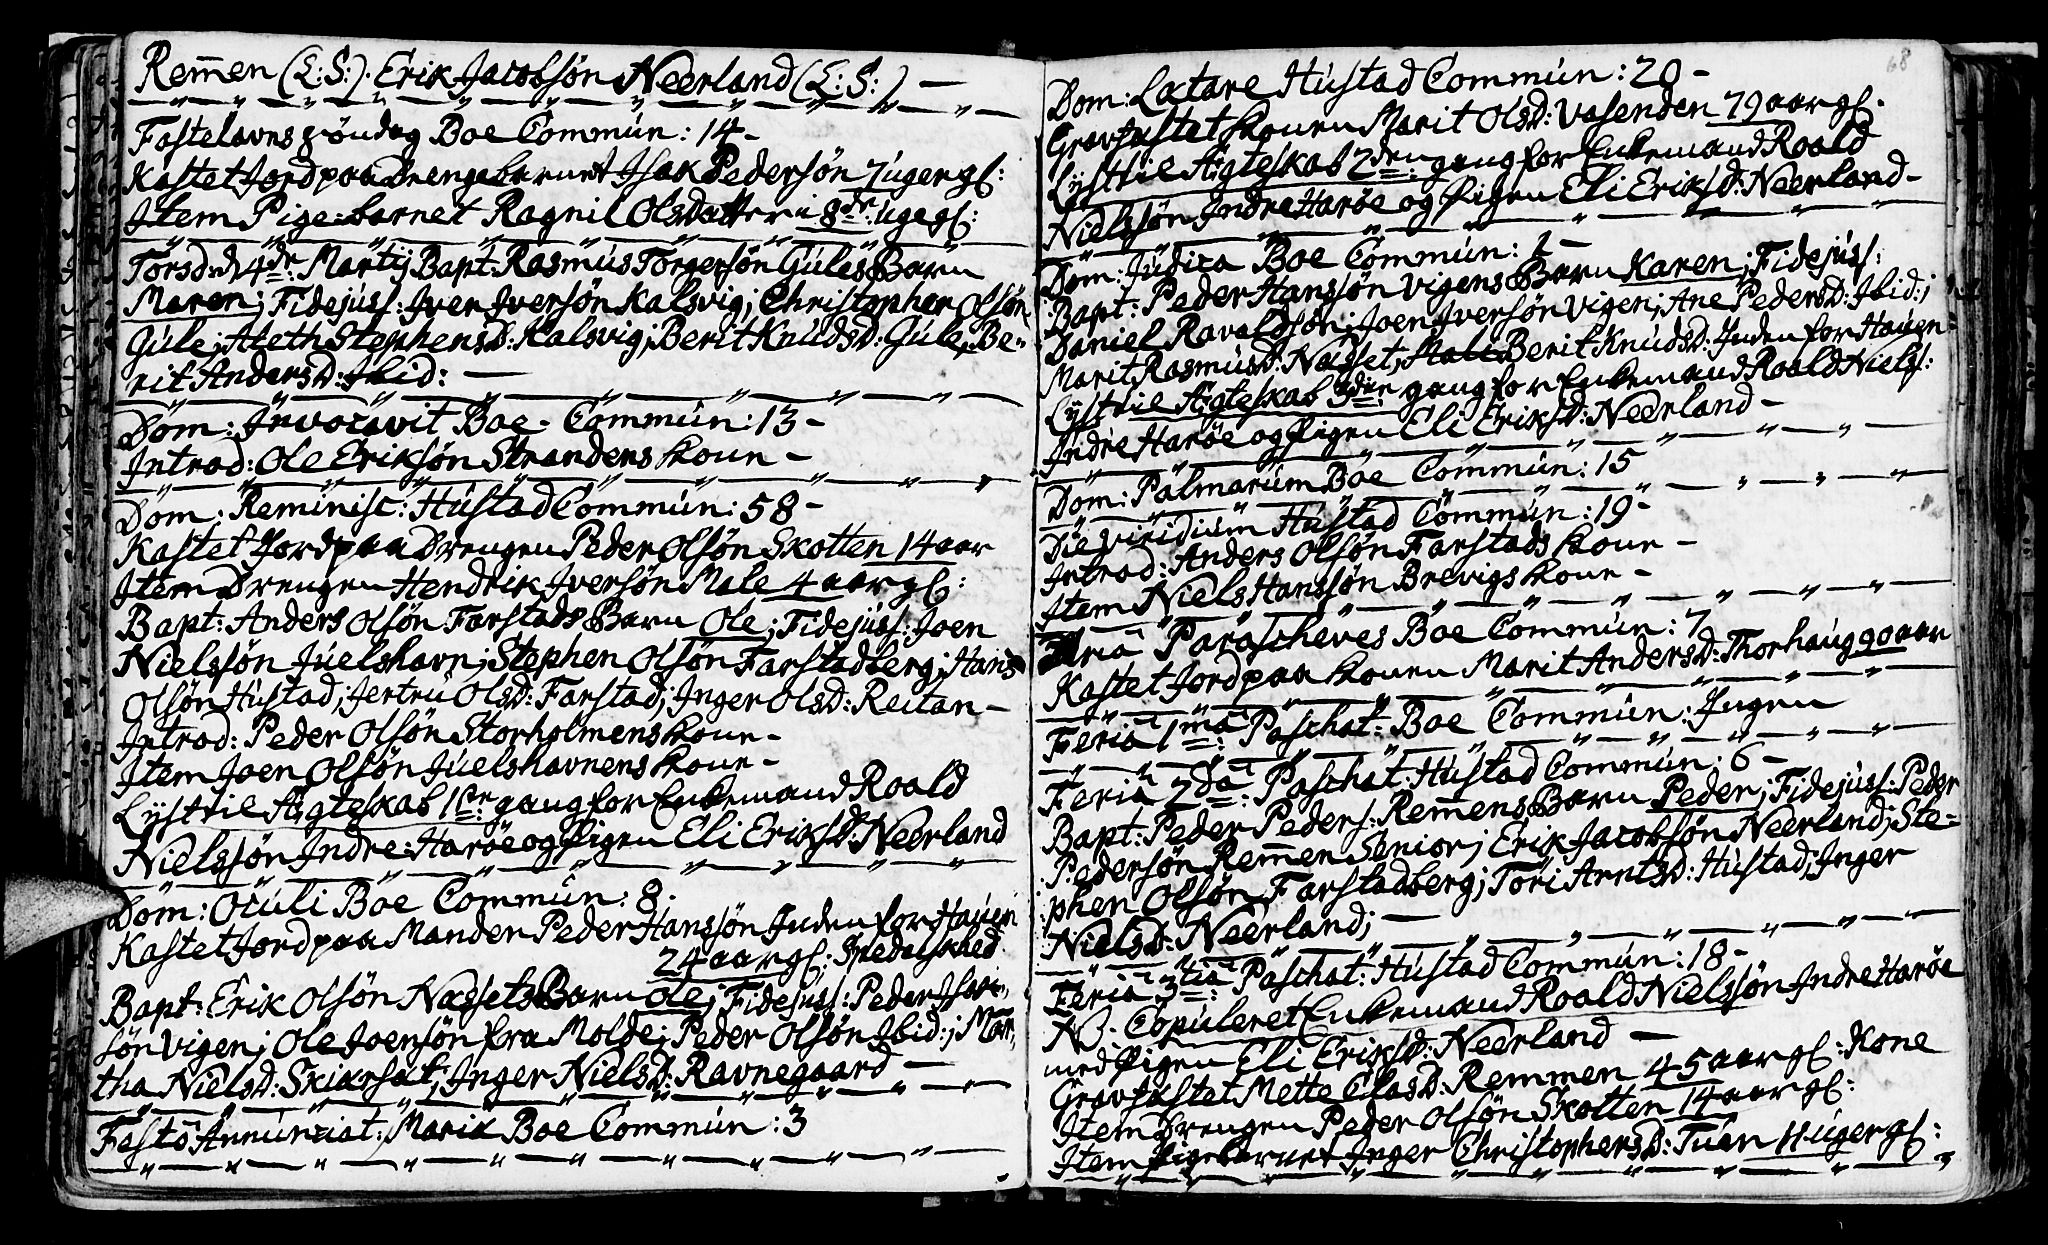 Rem̄en (L:S:). Erik Jacobsön Neerland (L:S:) —
Fastelavns söndag Boe Commun: 14 –
Kastet Jord paa Drengebarnet Isak Pedersön 7 uger gl:
Item Pige-barnet Ragnil Olsdatter i 8de uge gl:
Torsd: d 4de Martij Bapt: Rasmus Torgersön Gules Barn
Maren; Fidejuss: Iver Iversön Kalsvig; Christopher Olsön
Gule; Aleth Stephensd: Kalsvig; Berit Knudsd: Gule; Be-
rit Andersd: Ibid: —
Dom: Invocavit Boe – Commun: 13 –
Introd: Ole Eriksön Strandens Kone –
Dom: Reminisc: Hustad Commun: 58 –
Kastet Jord paa Drengen Peder Olsön Skotten 14 aar
Item Drengen Hendrik Iversön Male 4 aar gl:
Bapt: Anders Olsön Farstads Barn Ole; Fidejuss: Joen
Nielssön Juelshavn; Stephen Olsön Farstadberg; Hans
Olsön Hustad; Jertru Olsd: Farstad; Inger Olsd: Reitan –
Introd: Peder Olsön Storholmens Kone –
Item Joen Olsön Juelshavnens Kone –
Lyst til Ægteskab 1ste gang for Enkemand Roald
Nielssön Indre-Haröe og Pigen Eli Eriksd: Neerland
Dom: Oculi Boe Commun: 8.
Kastet Jord paa Manden Peder Hanssön Inden for Hauen
24 aar gl; Spedalskhed
Bapt: Erik Olsön Næssets Barn Ole; Fidejuss: Peder
sön Vigen; Ole Joensön fra Molde; Peder Olsön Ibid:; Mar-
tha Nielsd: Skiarset; Inger Nielsd: Ravnegaard —
Festo Annunciat: Mariæ Boe Commun: 3
68
Dom: Lætare Hustad Commun: 20 –
Gravfæstet Konen Marit Olsd: Vasenden 79 aar gl.
Lyst til Ægteskab 2den gang for Enkemand Roald
Nielssön Indre Haröe og Pigen Eli Eriksd: Neerland –
Dom: Judica Boe Commun: 1 –
Bapt: Peder Hanssön Vigens Barn Karen; Fidejuss:
Daniel Ravaldsön; Joen Iversön Vigen; Ane Pedersd: Ibid:;
Marit Rasmusd: Næsset; Berit Knudsd: Inden for Hauen:
Lyst til Ægteskab 3die gang for Enkemand Roald Niels:
Indre Haröe og Pigen Eli Eriksd: Neerland –
Dom: Palmarum Boe Commun: 15
Die viridium Hustad Commun: 19 –
Introd: Anders Olsön Farstads Kone –
Item Niels Hanssön Brevigs Kone –
Feria Parascheves Boe Commun: 7
Kastet Jord paa Konen Marit Andersd: Thorhaug 90 aar
Feria 1ma: Paschat: Boe Commun: Ingen
Feria 2da: Paschat: Hustad Commun: 6 –
Bapt: Peder Peders: Rem̄ens Barn Peder; Fidejuss: Peder
Pedersön Rem̄en Senior; Erik Jacobsön Neerland; Ste-
phen Olsön Farstadberg; Töri Arntsd: Hustad; Inger
Nielsd: Neerland; —
Feria 3tia: Paschat: Hustad Commun: 18 –
NB. Copuleret Enkemand Roald Nielssön Indre Haröe
med Pigen Eli Eriksd: Neerland —
Gravfæstet Mette Clasd: Remmen 45 aar gl: Kone
Item Drengen Peder Olsön Skotten 14 aar gl:
Item Pigebarnet Inger Christophersd: Tuen 11 uger gl: